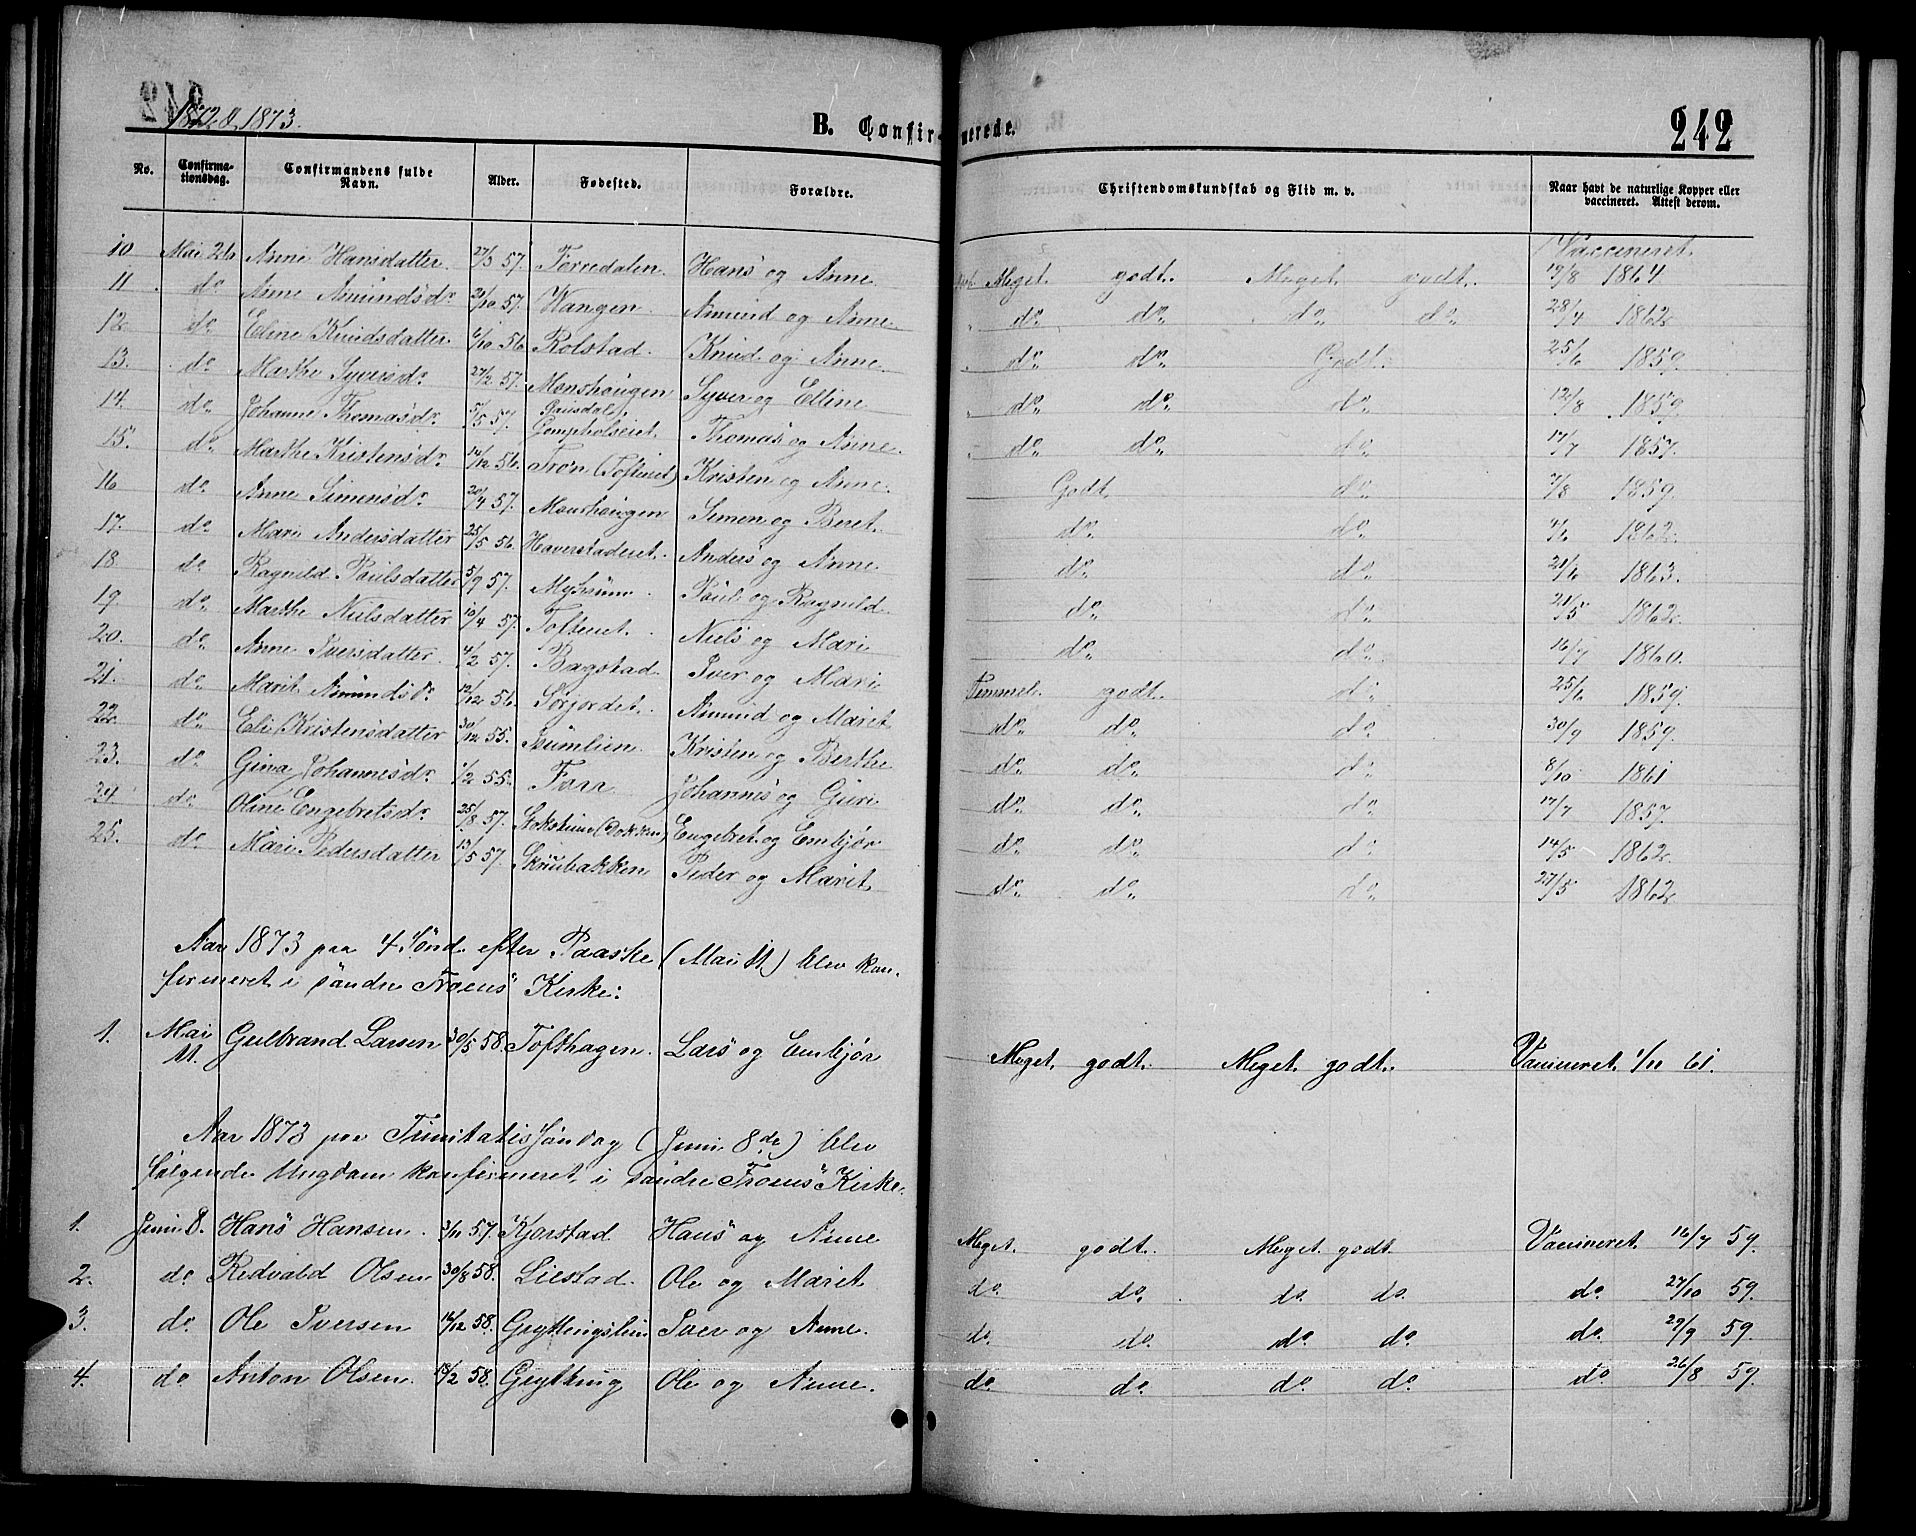 1872 & 1873.
B. Confirmerede.
242
No. Confirmationsdag. Confirmandens fulde Navn. Alder. Fødested. Forældre. Christendomskundskab og Flid m. v. Naar havt de naturlige Kopper eller vaccineret. Attest derom.
Vaccineret
10 Mai 26 Anne Hansdatter 27/3 57. Hans og Anne Meget godt. Meget godt. 19/8 1864
11 do Anne Amundsdr 21/10 57. Wangen Amund og Anne do do do do 28/7 1862
12 do Eline Knudsdatter 6/10 56 Rolstad. Knud og Anne do do Godt. 25/6 1859.
13. do Marthe Syversdr 27/2 57. Monshougen Syver og Elline do do do 12/8 1859
14. do Johanne Thomasdr 5/5 57. Thomas og Anne do do do 17/7 1857.
15. do Marthe Kristensdr 14/12 56. Tron (Tofteret) Kristen og Anne Godt. do 7/8 1859.
16 do Anne Simensdr 20/4 57. Monshougen Simen og Beret do do 4/6 1862
17. do Mari Andersdatter 25/5 56. Haverstaderet. Anders og Anne do do 21/6 1863.
18. do Ragnild Paulsdatter 5/9 57. Mysuene Paul og Ragnild do do 21/5 1862
19. do Marthe Nielsdatter 10/4 57. Tofteret. Niels og Mari do do 16/7 1860.
20. do Anne Iversdatter. 4/2 57. Bagstad Iver og Mari Temmel. godt. do 25/6 1859.
21. do Marit Amundsdr 12/12 56 Sørjordet. Amund og Marit do do do 30/9 1859.
22. do Eli Kristensdatter 30/12 55. Isumlien Kristen og Berthe do do do 8/10 1861
23. do Gina Johannesdr 1/2 55. Forr Johannes og Guri do do do 17/7 1857.
24. do Oline Engebretsdr 25/8 57. Stokstuen (Dokken) Engebret og Embjør do do do 14/5 1862
25. do Mari Pedersdatter 13/5 57. Skrubakken Peder og Marit do do do 27/5 1862
Aar 1873 paa 4 Sønd. efter Paaske (Mai 11) blev kon-
firmeret i søndre Froens Kirke:
1. Mai 11. Gulbrand Larsen 30/5 58. Tofthagen. Lars og Embjør Meget godt. Meget godt. Vaccineret 1/11 61.
Aar 1873 paa Trinitatis Søndag (Juni 8de) blev
følgende Ungdom konfirmeret i søndre Froens Kirke.
1. Juni 8. Hans Hansen. 3/11 57. Kjorstad Hans og Anne Meget godt. Meget godt Vaccineret 16/7 59.
2. do Redvald Olsen 30/8 58. Liestad. Ole og Marit do do do do do 27/10 59.
3. do Ole Iversen 14/12 58. Gryttingslien Iver og Anne. do do do do do 29/9 59.
4. do Anton Olsen. 14/2 58. Grytting Ole og Anne. do do do do do 26/8 59.